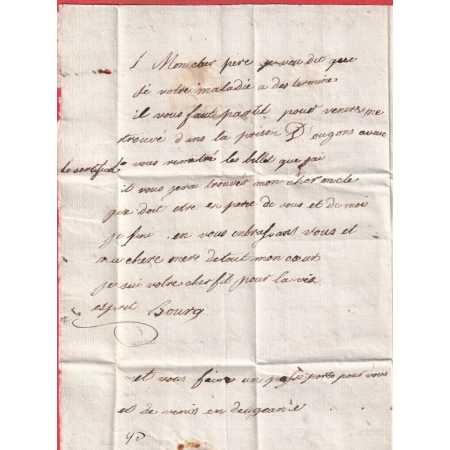 1 Mon cher pere je vou dit que
si votre maladie a des termine
il vous faut partit pour venir me
trouvé dans la prison D ougons avec
le certificat je vous remetré les billet que jai
il vous ferai trouver mon cher oncle
que doit etre en peine de vous et de moi
je fini en vous enbrasans vous et
ma chere mere de tout mon cœur
je sui votre cher fil pour la vie
esprit Bourg
et vous faire un passeporta pour vous
et de venir en